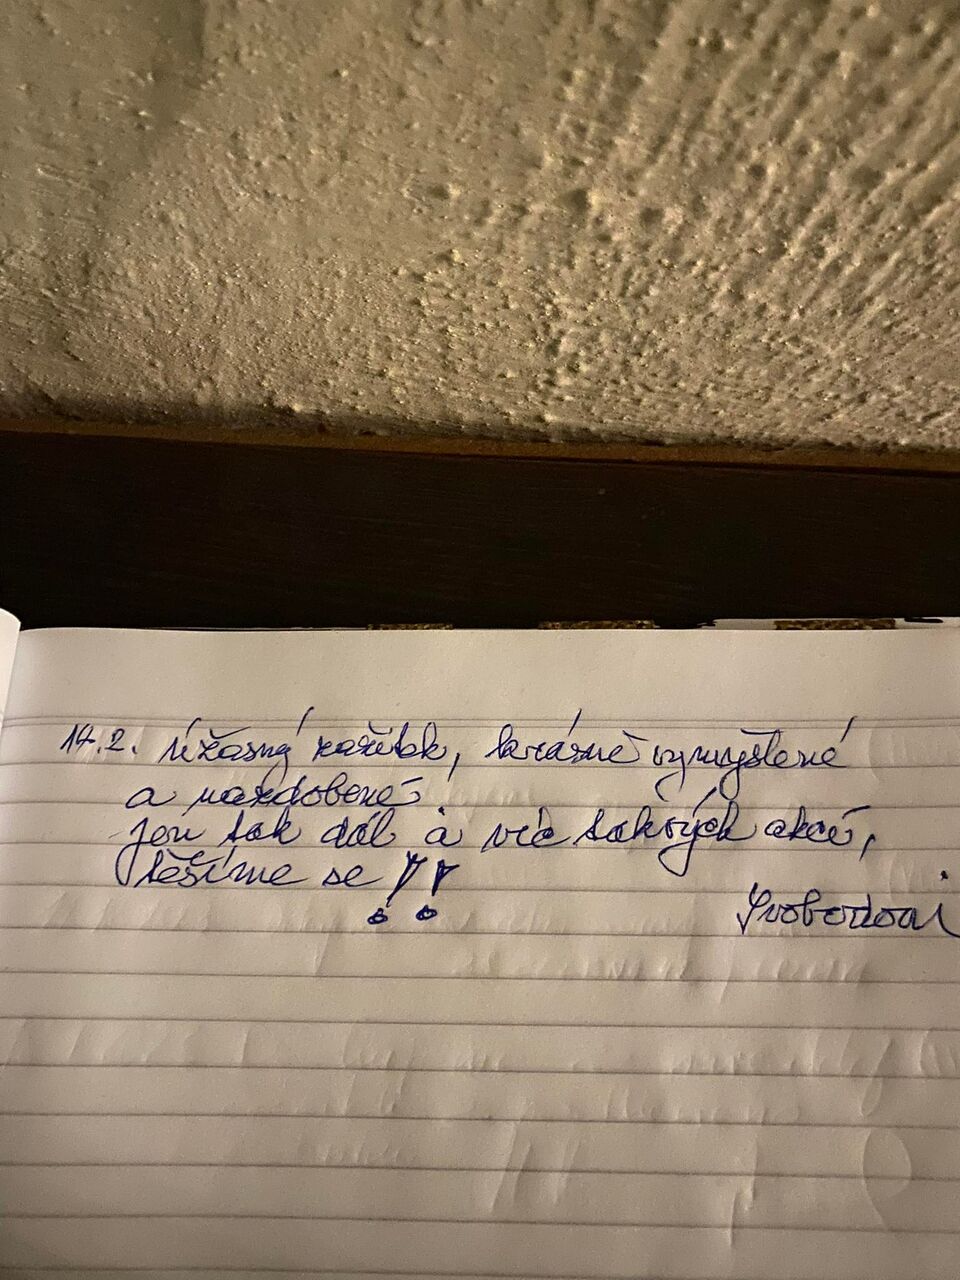 14.2. Úžasný zažitek, krásně vymyšlené
a nazdobené.
Jen tak dál a víc takových akcí,
těšíme se !!
Svobodovi